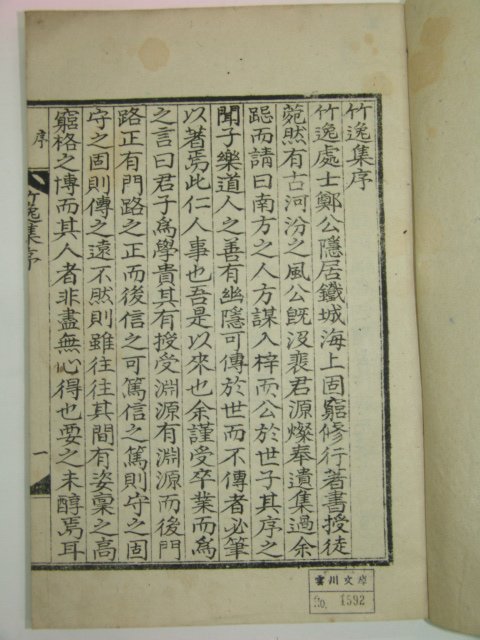 竹逸集序
竹逸處士鄭公隱居鐵城海上固窮修行著書授徒
菀然有古河汾之風公旣沒裴君源燦奉遺集過余
跽而請曰南方之人方謀入梓而公於世子其序之
聞子樂道人之善有幽隱可傳於世而不傳者必筆
以著焉此仁人事也吾是以來也余謹受卒業而爲
之言曰君子爲學貴其有授受淵源有淵源而後門
路正有門路之正而後信之可篤信之篤則守之固
守之固則傳之遠不然則雖往往其間有姿稟之高
窮格之博而其人者非盡無心得也要之未醇焉耳
序
竹逸集序
一
雲川文庫
No. 1592